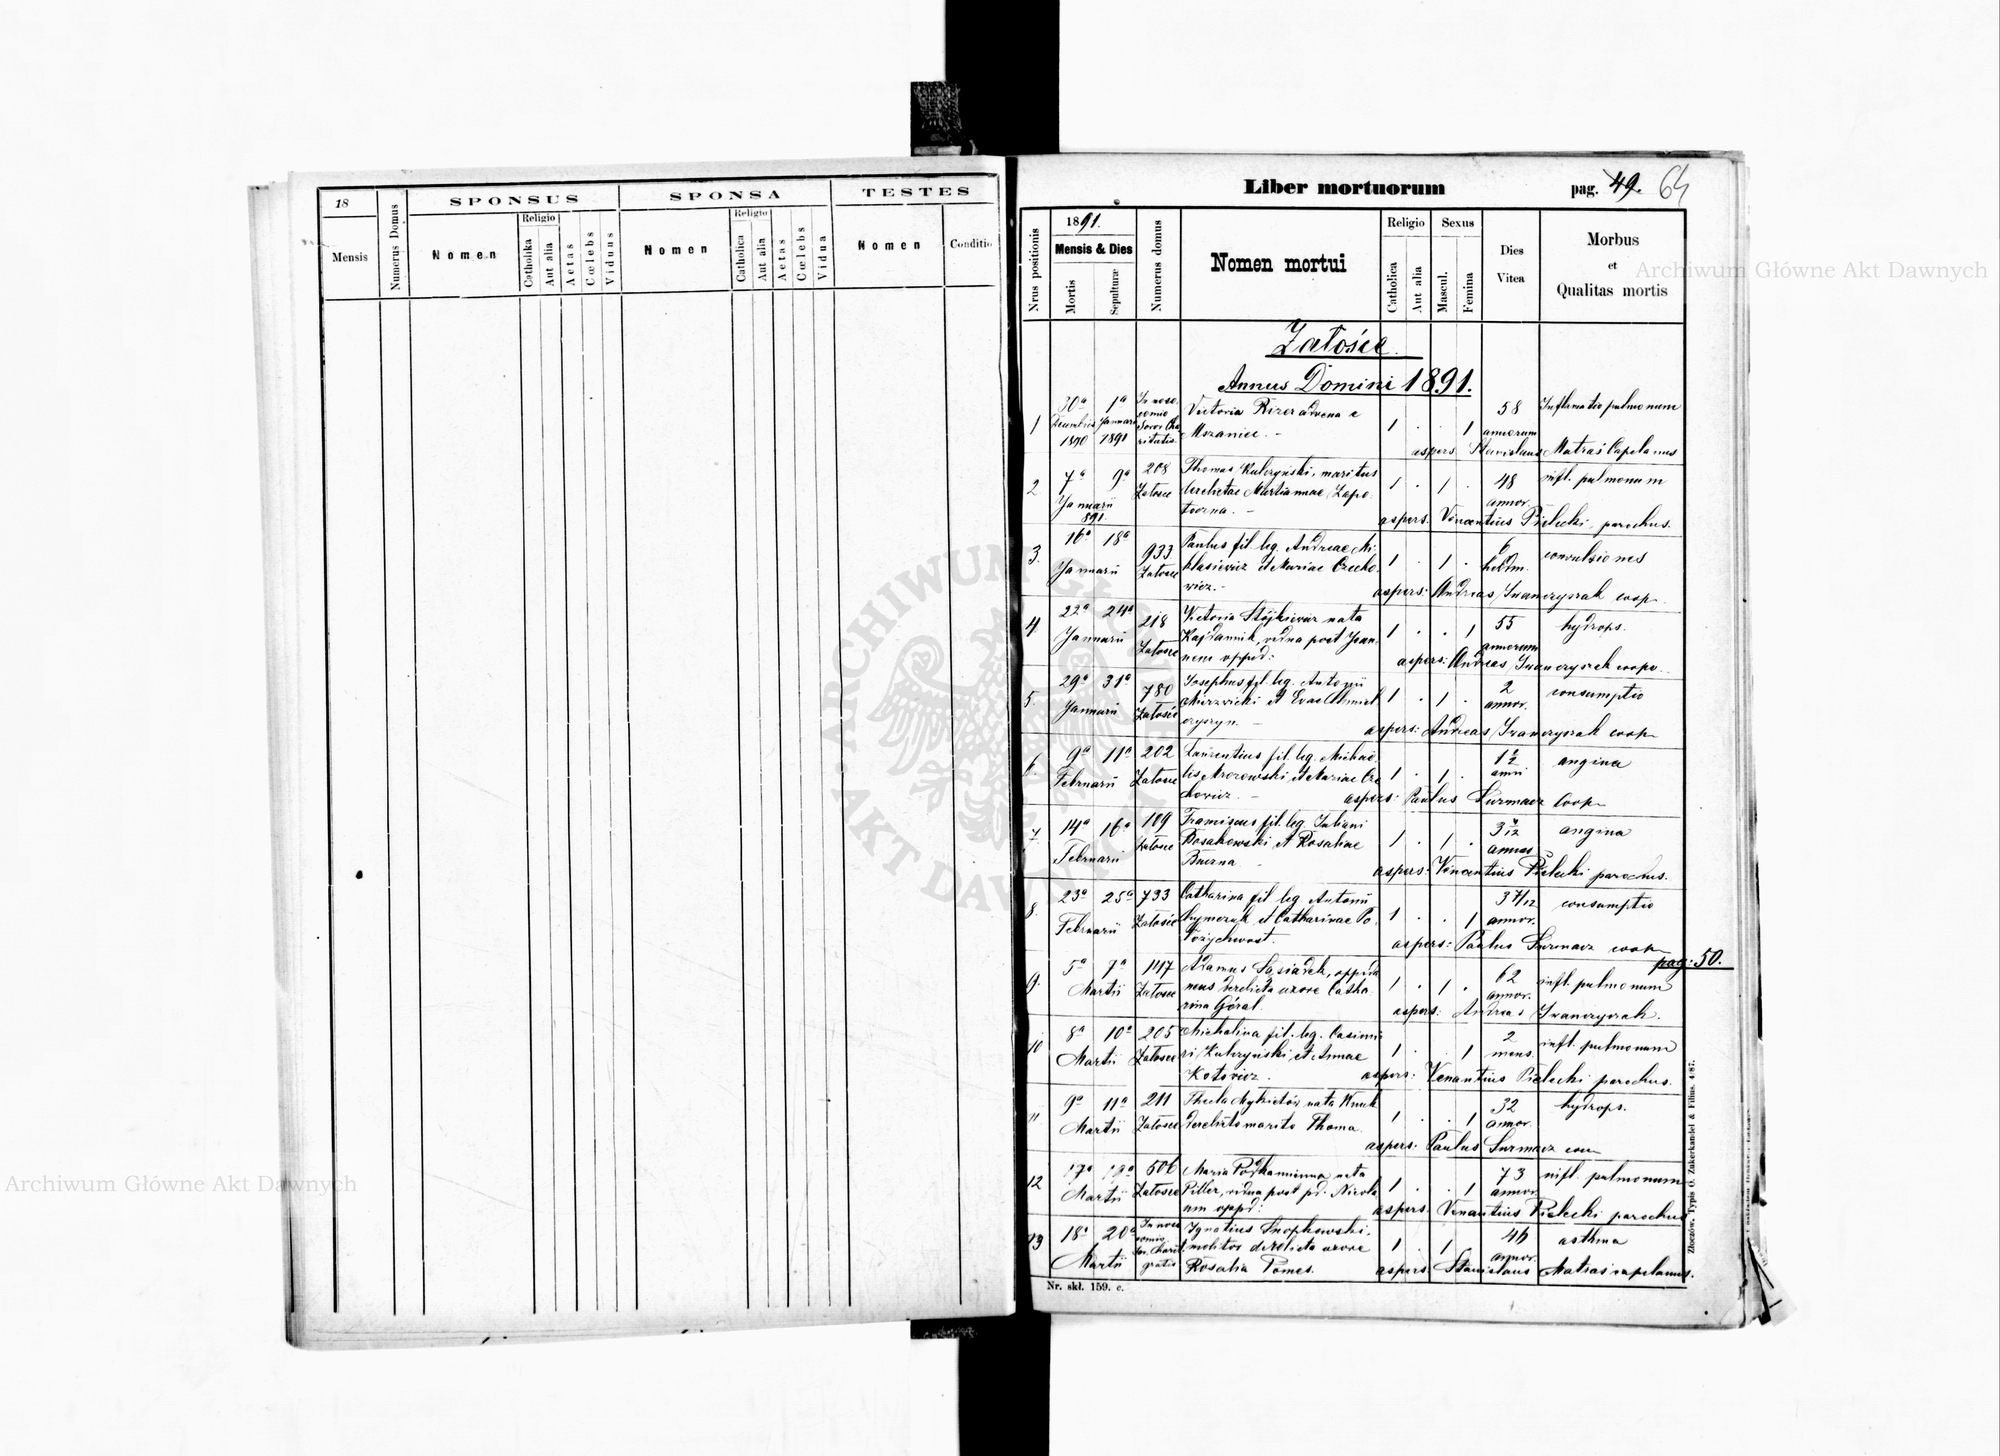 18
Mensis
Numerus Domus
SPONSUS
Nomen
Religio
Catholika
Aut alia
Aetas
Cœlebs
Viduus
SPONSA
Nomen
Religio
Catholica
Aut alia
Aetas
Cœlebs
Vidua
TESTES
Nomen
Conditio
Liber mortuorum
pag. 49. 64
Nrus positionis
1891.
Mensis & Dies
Mortis
Sepulturæ
Numerus domus
Nomen mortui
Religio
Catholica
Aut alia
Sexus
Mascul.
Femina
Dies
Vitea
Morbus
et
Qualitas mortis
Załośce.
Annus Domini 1891.
1 30a 1a 58
Decembris Januarii Victoria advena e 1 . . 1 annorum pulmonum
1890 1891
aspers. Stanislaus Matras Capelanus
2 7a 9a 208 Thomas Kulczyński, maritus 1 . 1 . 48 infl. pulmonum
Januarii Załosce derelictae Mariannae annor.
891.
aspers. Venantius Pielecki, parochus.
3. 16a 18a 933 Paulus fil. leg. Andreae Mi- 1 . 1 . 6 convulsiones
Januarii Załosce klasiewicz et Mariae Czecho- hebdm.
wicz.-
aspers: Andreas Iwanczyszak coop.
4 22a 24a 218 Victoria nata 1 . . 1 55 hydrops.
Januarii Załosce vidua post Joan- annorum
nem oppid:
aspers: Andreas Iwanczyszak coop.
5. 29a 31a 780 Josephus fil. leg. Antonii 1 . 1 . 2 consumptio
Januarii Załosce et Evae annor.
aspers: Andreas Iwanczyszak coop
6. 9a 11a 202 Laurentius fil. leg. Michaë- 1 . 1 . 1 1/2 angina
Februarii Załosce lis Mrozowski et Mariae Cze-
chowicz. -
aspers: Paulus Surmacz Coop
7. 14a 16a 109 Franciscus fil. leg. Juliani 1 . 1 . angina
Februarii Załosce Bosakowski et Rosaliae
aspers: Venantius Pielecki parochus.
8. 23a 25a 733 Catharina fil. leg. Antonii 1 . . 1 3 7/12 consumptio
Februarii Załosce et Catharinae Po- annor.
aspers: Paulus Surmacz coop
pag: 50.
9. 5a 7a 147 Adamus Sąsiadek, oppida- 1 . 1 . 62 infl. pulmonum
Martii Załosce neus derelicta uxore Catha- annor.
rina Góral.
aspers: Andreas Iwanczyszak.
10 8a 10a 205 Michalina fil. leg. Casimi- 1 . . 1 2 infl. pulmonum
Martii Załosce ri Kulczyński, et Annae mens.
Kotowicz.
aspers: Venantius Pielecki parochus.
11 9a 11a 211 Thecla Mykietów nata 1 . . 1 32 hydrops.
Martii Załosce derelicto marito Thoma. annor.
aspers: Paulus Surmacz
12 17a 506 Maria nata 1 . . 1 73 infl. pulmonum
Martii Załosce Piller, vidua post pd. Nicola- annor.
um oppd:
aspers. Venantius Pielecki parochus
13 18a 20a Ignatius Snopkowski, 1 . 1 46 asthma
Martii molitor derelicta uxore annor.
gratis Rosalia Pomes.
aspers. Stanislaus Matras capelanus.
Nr. skł. 159. c.
Złoczów. Typis O. Zukerkandel & Filius. 4/87.
Archiwum Główne Akt Dawnych
Archiwum Główne Akt Dawnych
ARCHIWUM GŁÓWNE AKT DAWNYCH